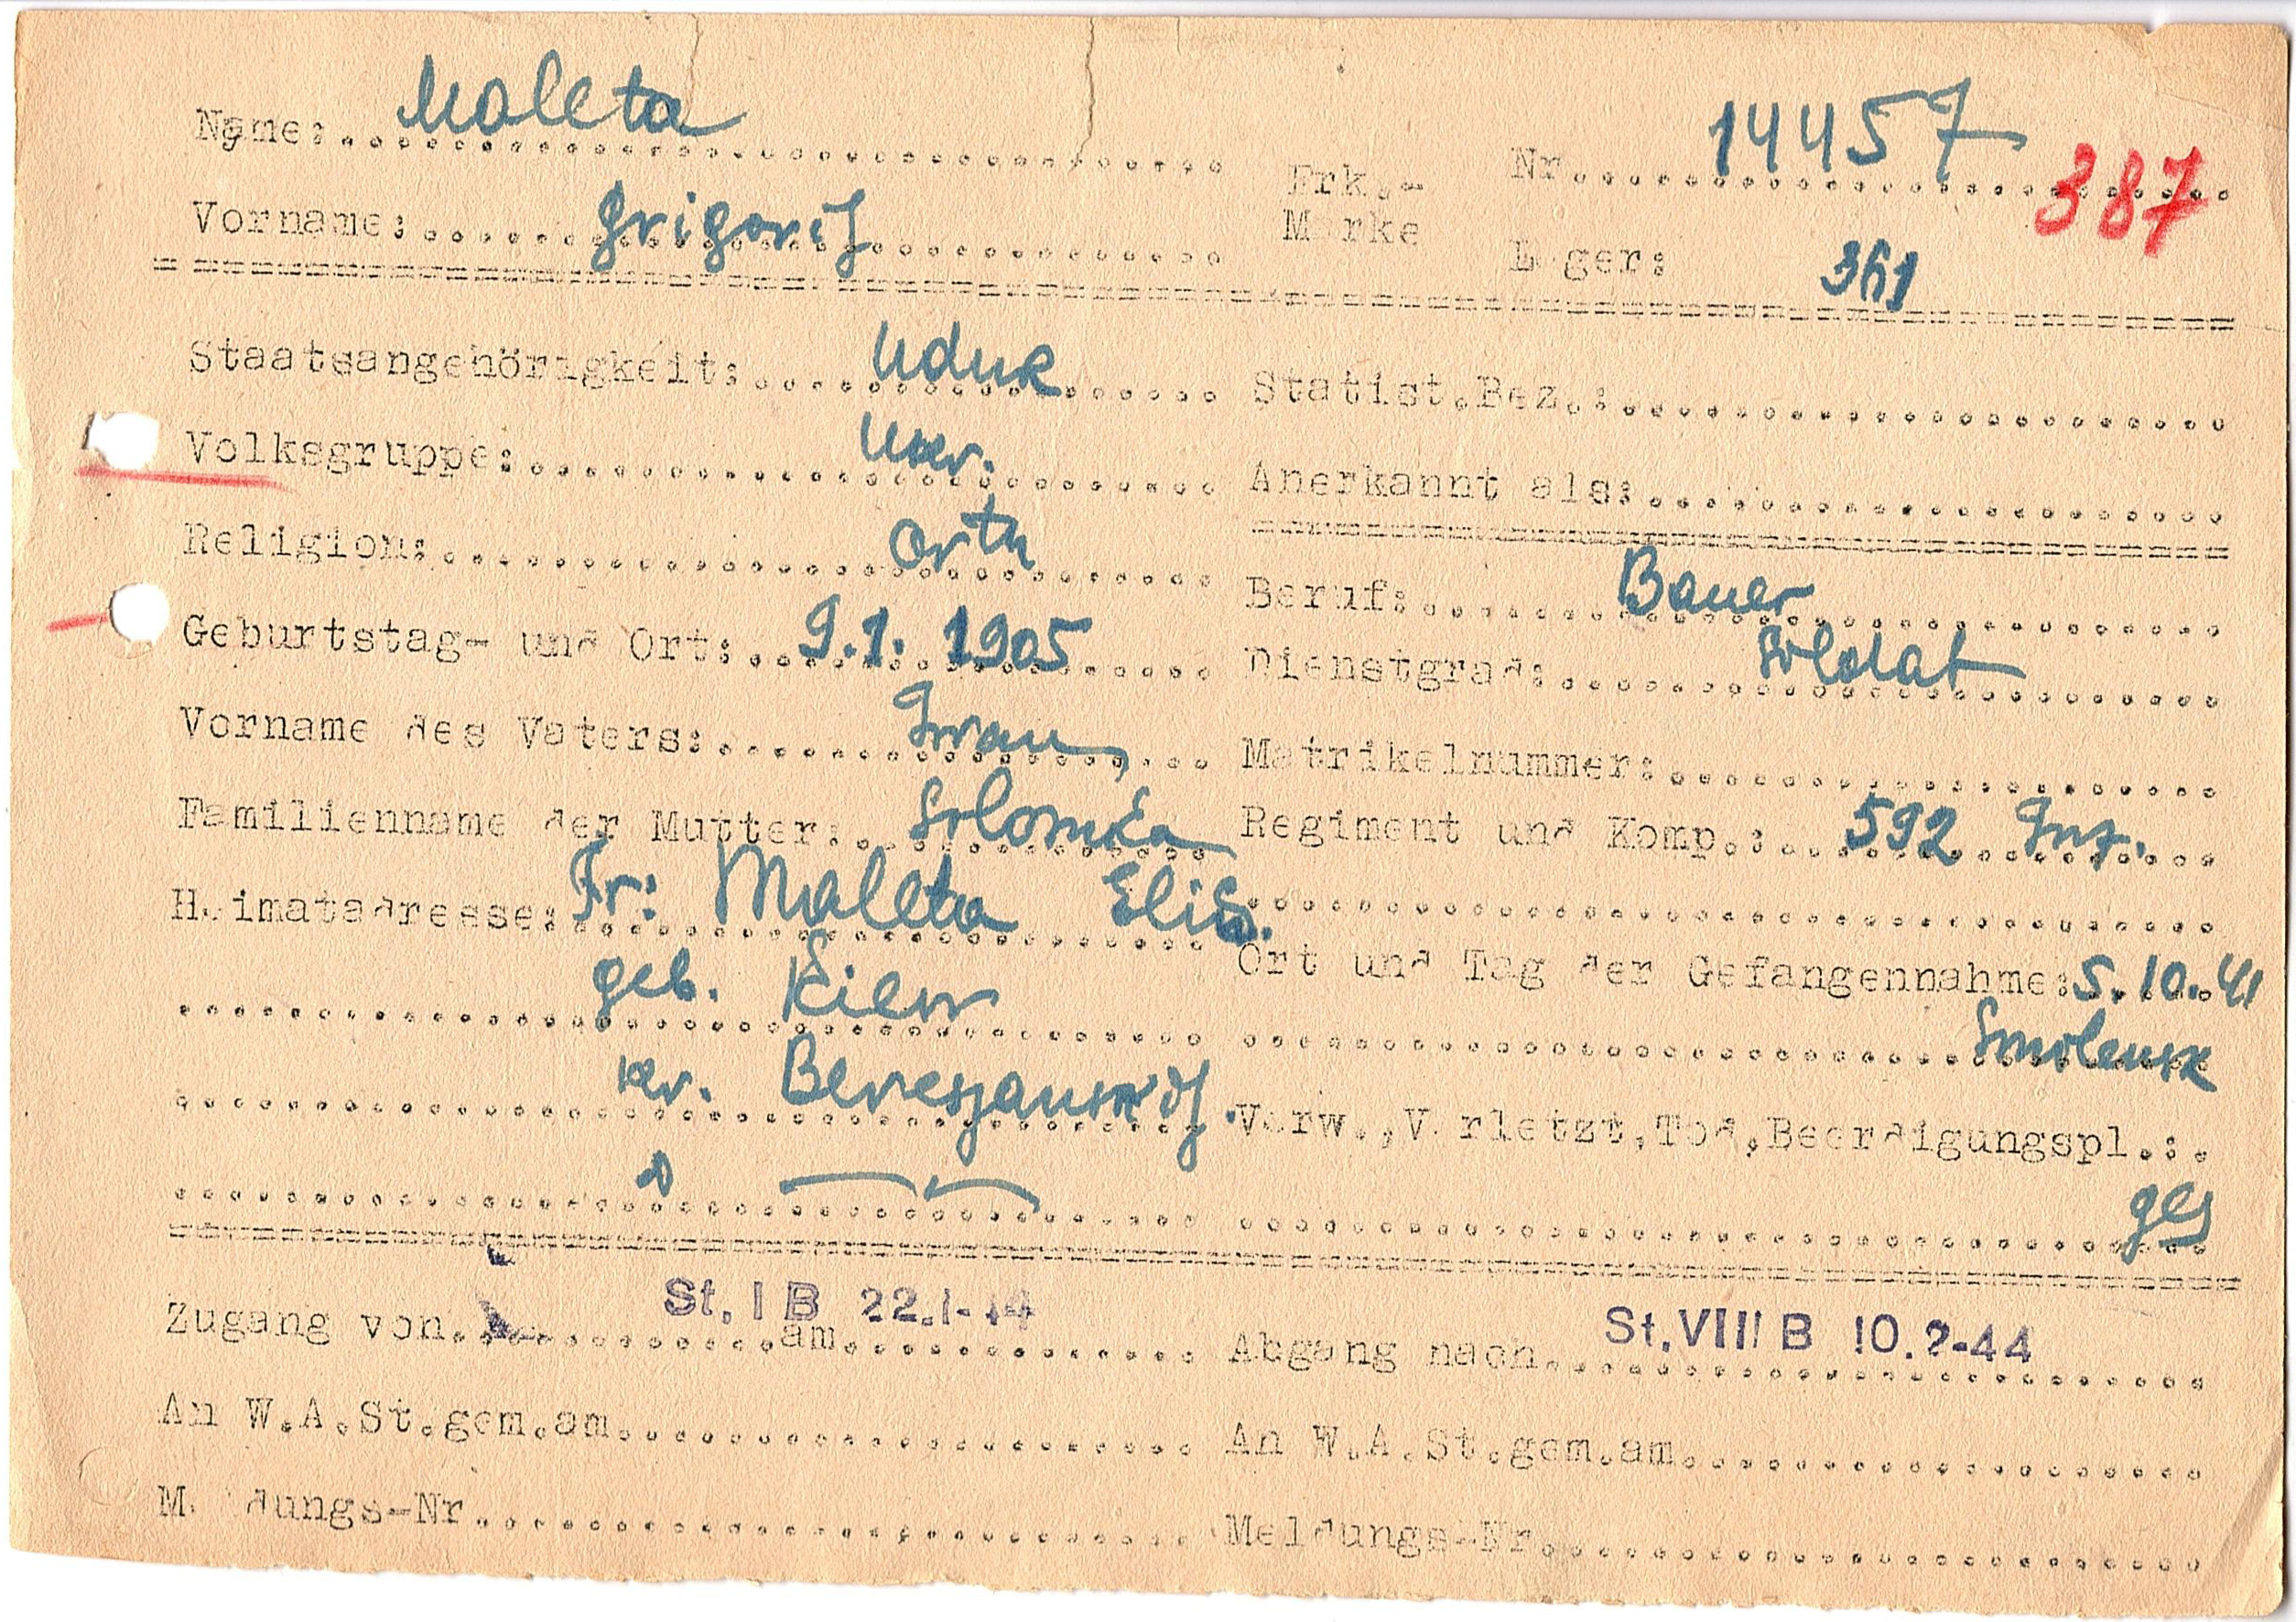 Name: Maleta
Vorname: Grigorij
Frk.-Marke Nr. 14457
387
Lager:
Staatsangehörigkeit: UdSSR
Statist.Bez.:
Volksgruppe: Ukr.
Anerkannt als:
Religion: orth
Beruf: Bauer
Geburtstag- und Ort: 9.1.1905
Dienstgrad: Soldat
Vorname des Vaters: Iwan
Matrikelnummer:
Familienname der Mutter:
Regiment und Komp.: 592 Inf.
Heimatadresse: Fr: Maleta Elis.
geb. Kiew
Ort und Tag der Gefangennahme: 5.10.41
Smolensk
kr.
Verw.,Verletzt,Tod,Beerdigungspl.:
ges
Zugang von St. I B am 22.1-44
Abgang nach St. VIII B 10.2-44
An W.A.St.gem.am
An W.A.St.gem.am
Meldungs-Nr
Meldungs-Nr.